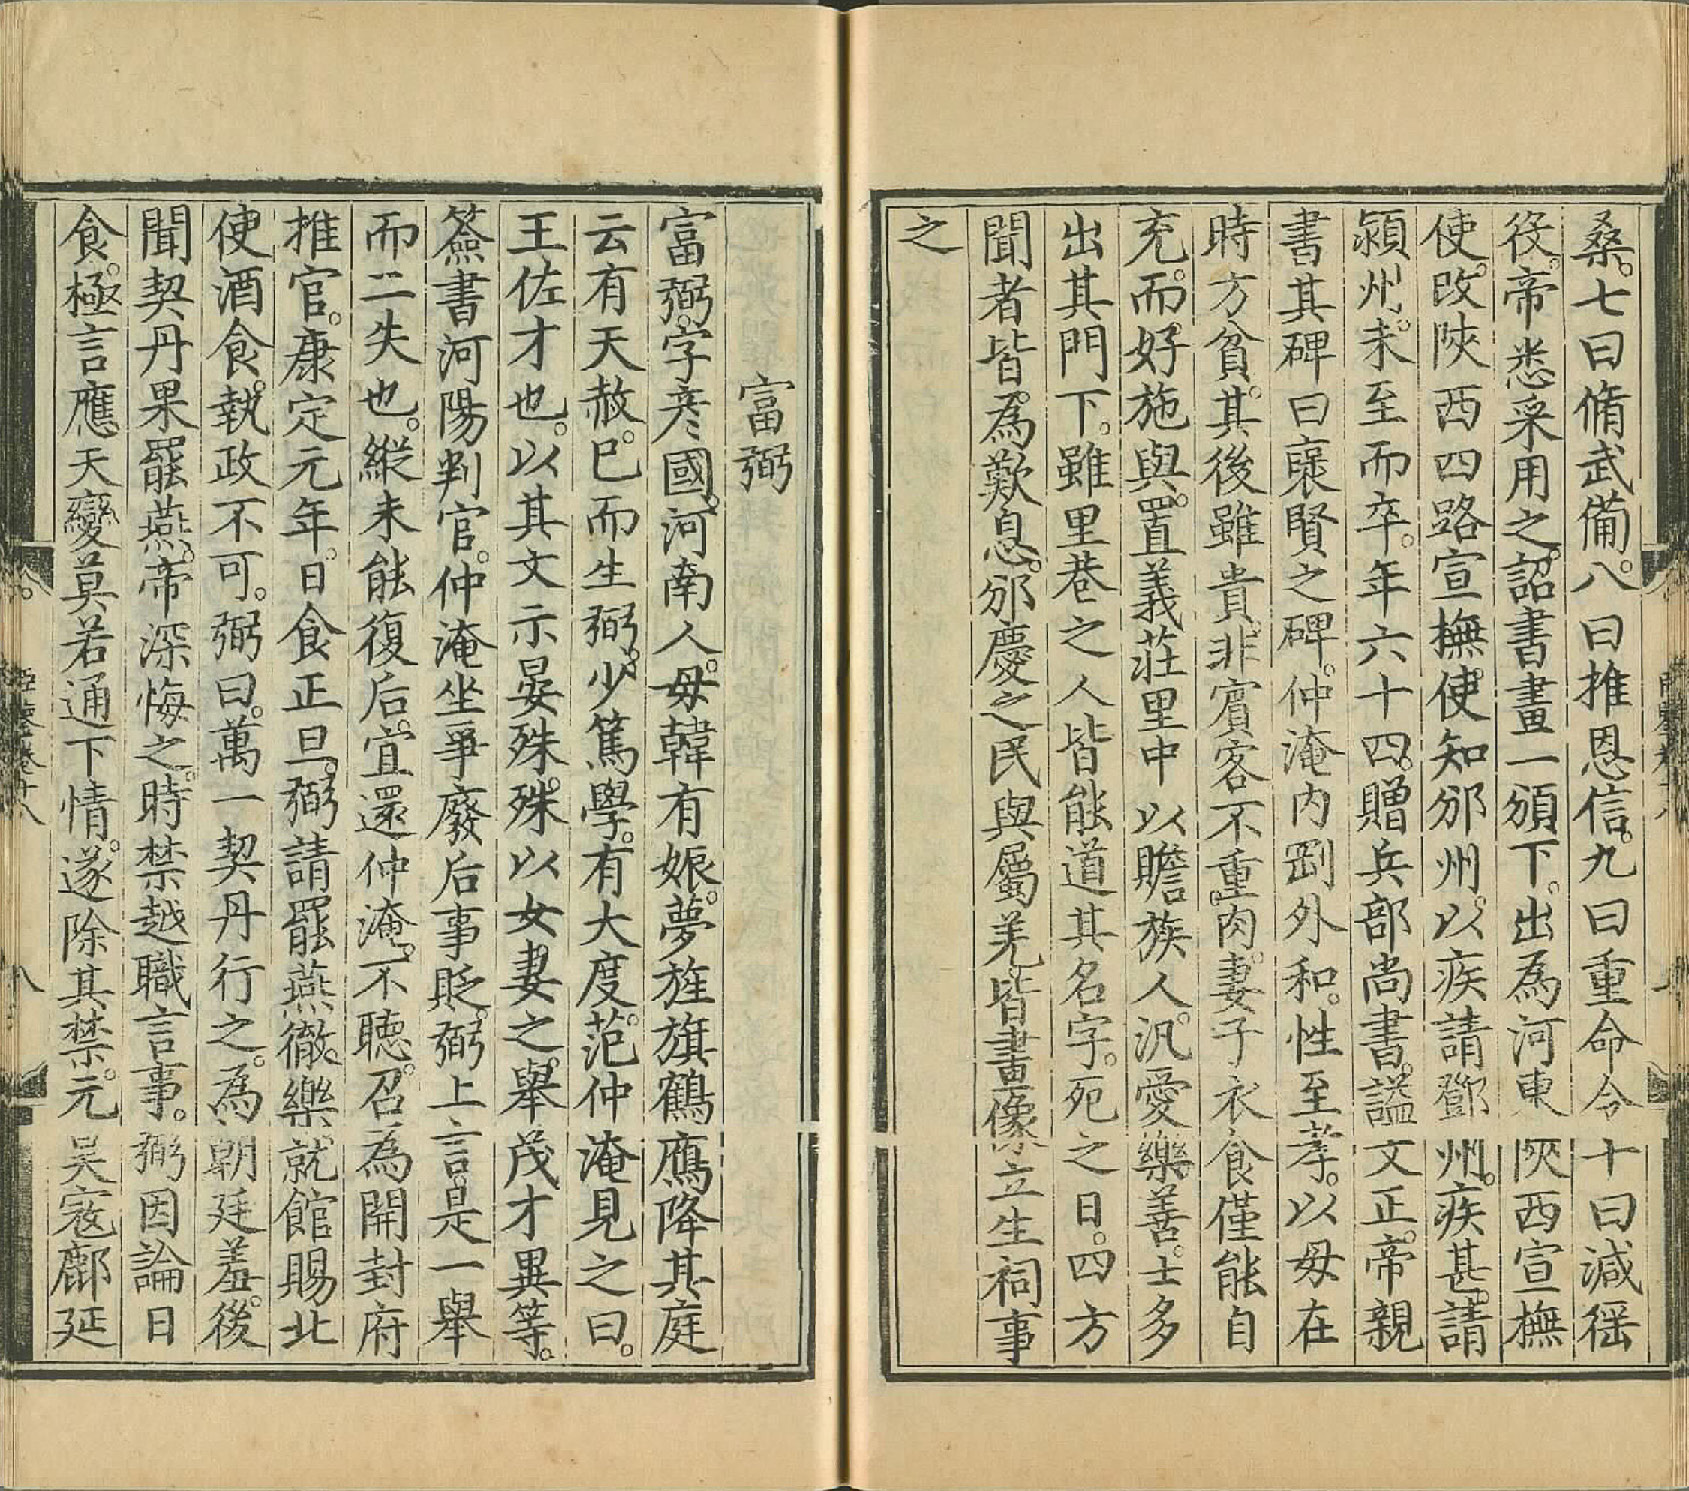 桑。七曰脩武備。八曰推恩信。九曰重命令十曰減徭
役。帝悉采用之。詔書畫一頒下。出為河東陝西宣撫
使。改陝西四路宣撫。使知邠州。以疾請鄧州。疾甚。請
潁州。未至而卒。年六十四。贈兵部尚書。諡文正。帝親
書其碑曰襃賢之碑。仲淹内剛外和。性至孝。以母在
時方貧。其後雖貴。非賓客不重肉。妻子衣食僅能自
充。而好施與。置義莊里中以贍族人。汎愛樂善。士多
出其門下。雖里巷之人皆能道其名字。死之日。四方
聞者皆。為歎息。邠慶之民與屬羌。皆畫像立生祠事
之
富弼
富弼。字彦國。河南人。母韓有娠。夢旌旗鶴鴈降其庭
云有天赦。巳而生弼。少篤學。有大度。范仲淹見之曰。
王佐才也。以其文示晏殊。殊以女妻之。舉茂才異等。
簽書河陽判官。仲淹坐爭廢后事貶。弼上言。是一舉
而二失也。縱未能復后。宜還仲淹。不聽。召為開封府
推官。康定元年。日食正旦。弼請罷燕徹。樂就館賜北
使酒食。執政不可。弼曰。萬一契丹行之。為朝廷羞。後
聞契丹果罷燕。帝深悔之。時禁越職言事。弼因論日
食。極言應天變莫若通下情。遂除其禁。元吴寇鄜延
八